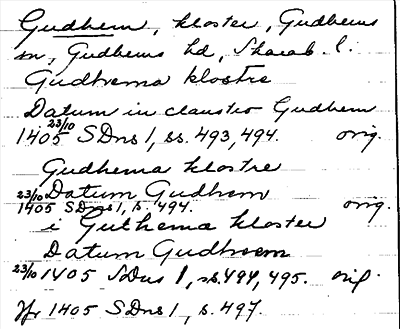 Gudhem, kloster, Gudhems
sn, Gudhems hd, Skarab. l.
Gudhema klostre
Datum in claustro Gudhem
23/10 1405 SDns 1, ss. 493, 494. orig.
Gudhema klostre
Datum Gudhem
23/10 1405 SDns 1, s. 494. orig.
i Guthema kloster
Datum Gudhem
23/10 1405 SDns 1, ss. 494, 495. orig.
Jfr 1405 SDns 1, s. 497.